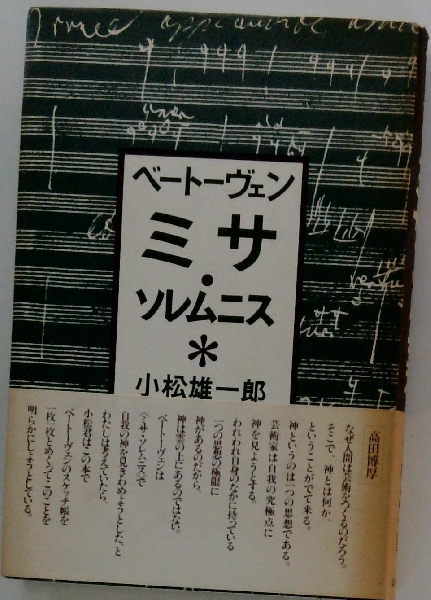 ベートーヴェン
ミサ・
ソレムニス
*
小松雄一郎
高田博厚
なぜ人間は芸術をつくるのだろう。
そこで、神とは何か、
ということがでて来る。
神というのは一つの思想である。
芸術家は自我の究極点に
神を見ようとする。
われわれ自身のなかに持っている
一つの思想の極限に
神があるのだから、
神は雲の上にあるのではない。
ベートーヴェンは
《ミサ・ソレムニス》で
自我の神を見きわめようとした、と
わたしは考えていたら、
小松君はこの本で
ベートーヴェンのスケッチ帳を
一枚一枚とめくってこのことを
明らかにしようとしている。